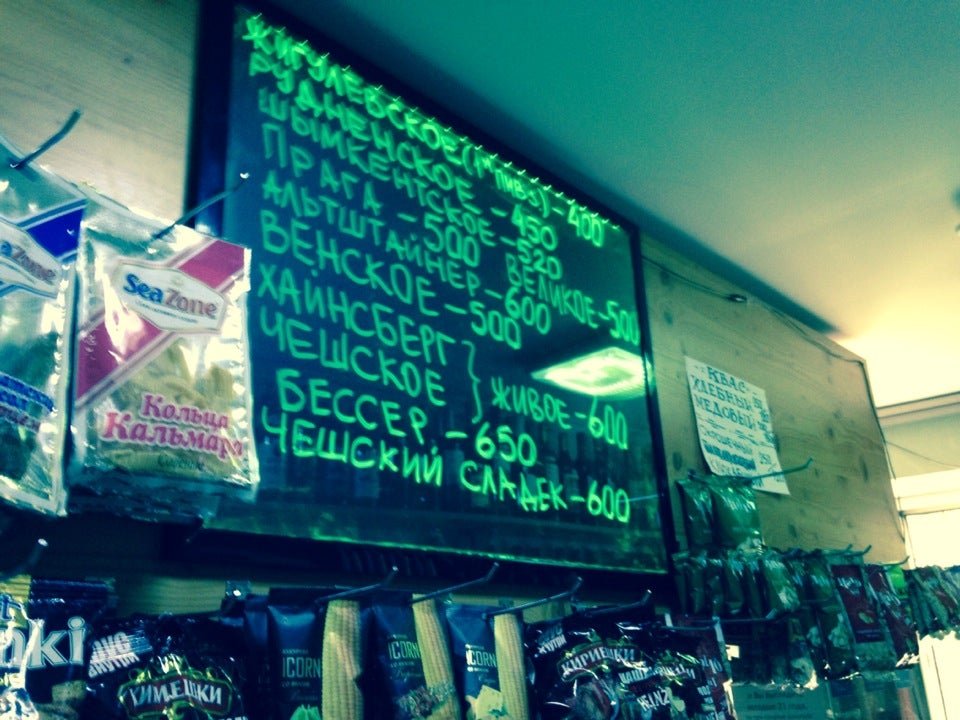 ЖИГУЛЕВСКОЕ(1ый ПИВЗ) - 400
РУДНЕНСКОЕ - 450
ШЫМКЕНТСКОЕ - 520
ПРАГА - 500 ВЕЛИКОЕ - 500
АЛЬТШТАЙНЕР - 600
ВЕНСКОЕ - 500
ХАЙНСБЕРГ
ЧЕШСКОЕ } ЖИВОЕ - 600
БЕССЕР - 650
ЧЕШСКИЙ СЛАДЕК - 600
Sea Zone
Sea Zone
Кольца
Кальмара
КВАС
ХЛЕБНЫЙ
МЕДОВЫЙ
nki
ХИМЕШКИ
ICORN
ICORN
КИРИЕШКИ